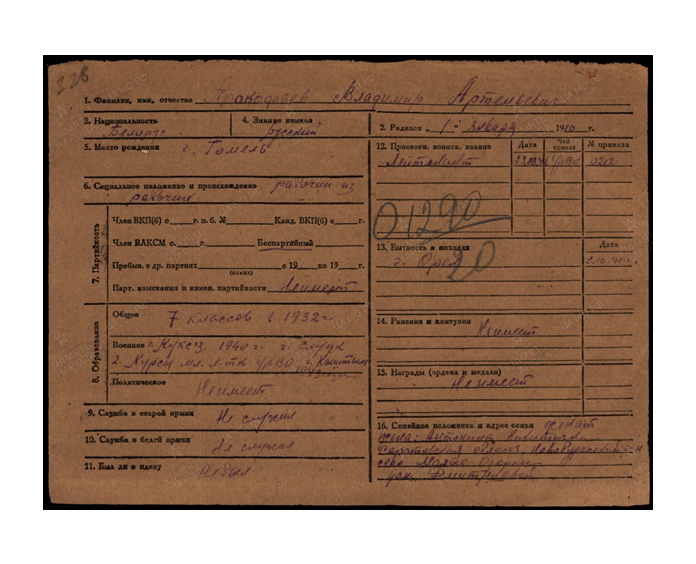 228
1. Фамилия, имя, отчество Прокофьев Владимир Артемьевич
3. Национальность Белорус
4. Знание языков русский
2. Родился „ 1 " января 1910 г.
5. Место рождения г. Гомель
6. Социальное положение и происхождение рабочий из
рабочих
7. Партийность
Член ВКП(б) с г. п. б. № Канд. ВКП(б) с г.
Член ВЛКСМ с г. Беспартийный
Пребыв. в др. партиях с 19 по 19 г.
(каких)
Парт. взыскания и вне партийности Неимеет
8. Образование
Общее 7 классов в 1932 г
Военное 1. КУКСЗ 1940 г. г. Слуцк
2. Курсы мл. л-тов УрВО г. Кыштым
Политическое Неимеет
9. Служба в старой армии Не служил
10. Служба в белой армии Не служил
11. Был ли в плену Небыл
12. Присвоен. воинск. звание Дата Чей приказ № приказа
Лейтенант УрВО
01290
20
13. Бытность в походах Дата
г. Орел
14. Ранения и контузии
Неимеет
15. Награды (ордена и медали)
Неимеет
16. Семейное положение и адрес семьи женат
жена: Антонина
Саратовская область
село Малые